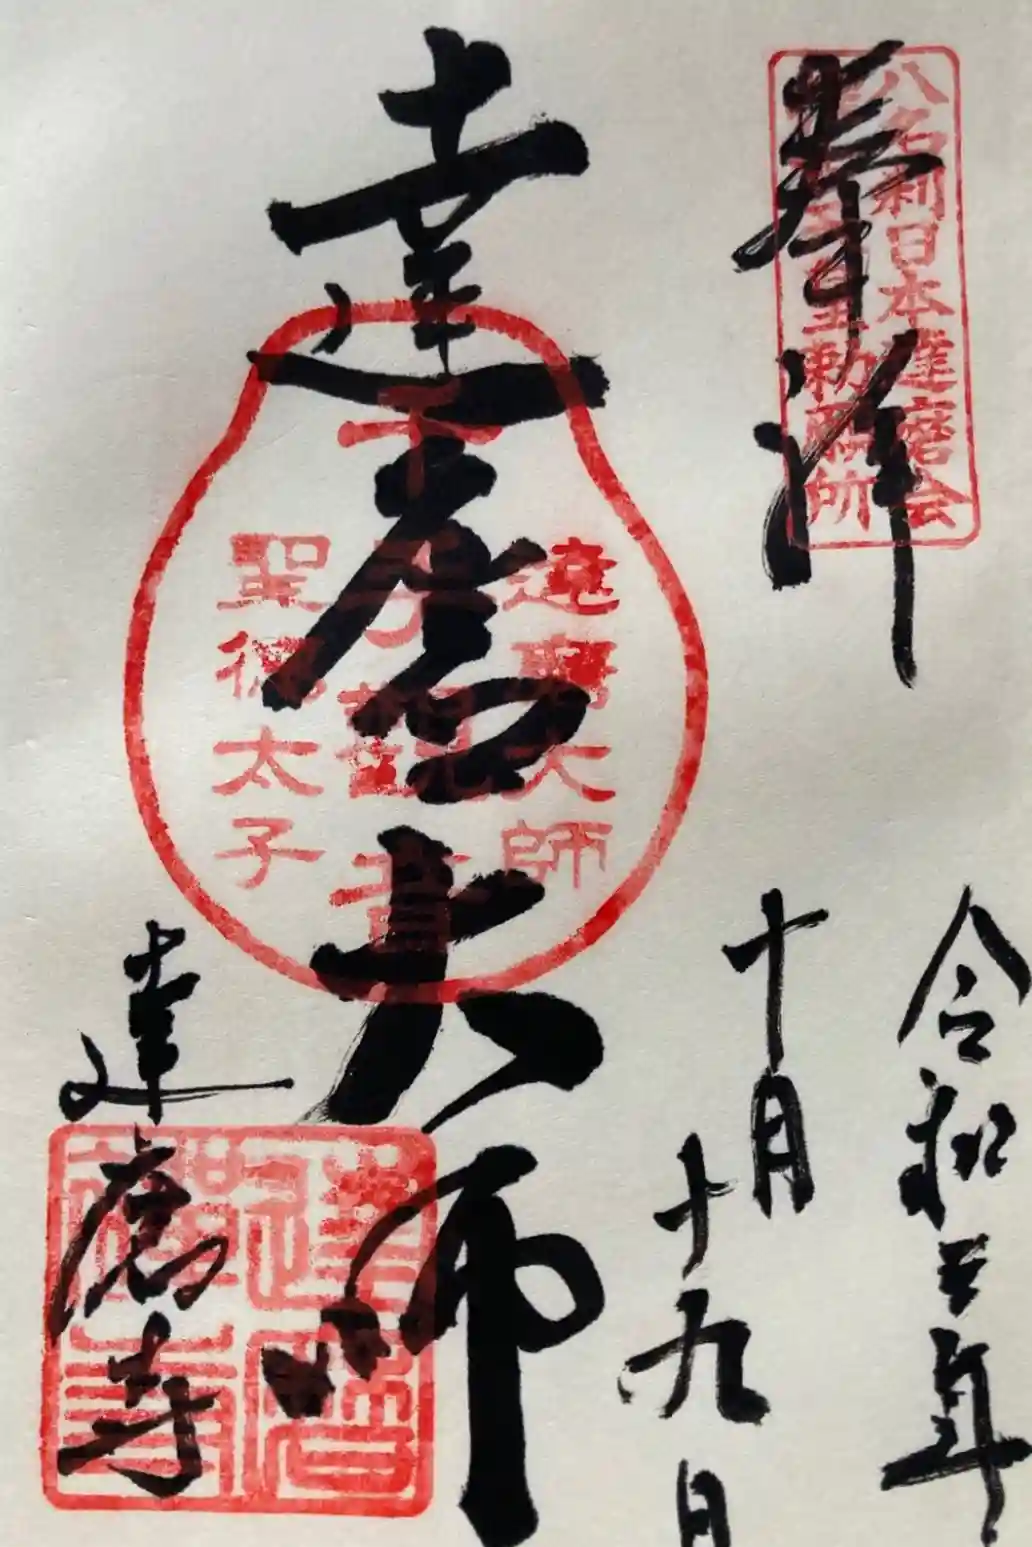 奉拝
八名刹日本達磨会
勅願所
令和三年
十月十九日
達磨大師
達磨大師
千手観音
聖徳太子
達磨寺